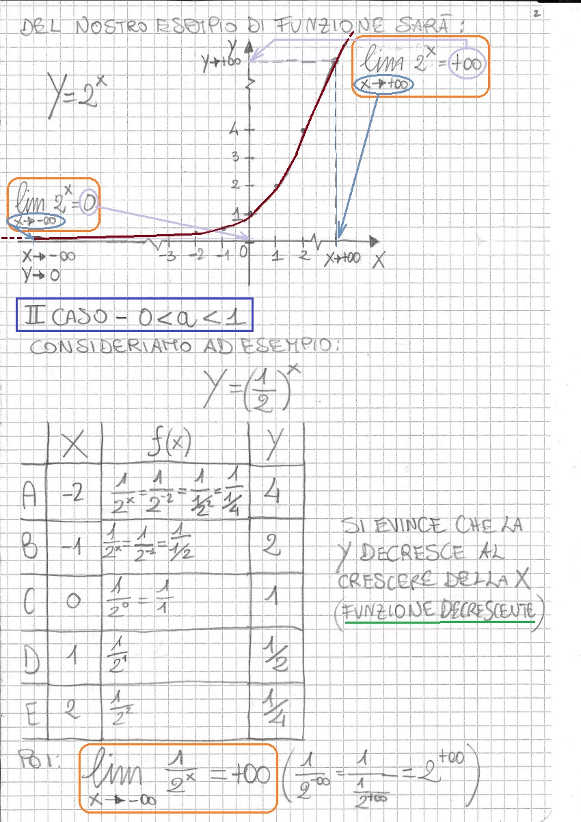 2
DEL NOSTRO ESEMPIO DI FUNZIONE SARÀ:
Y
Y→+∞
lim 2^x = +∞
x→+∞
Y=2^x
4
3
2
1
lim 2^x = 0
x→-∞
-3 -2 -1 0 1 2 X→+∞ X
X→-∞
Y→0
II CASO - 0<a<1
CONSIDERIAMO AD ESEMPIO:
Y=(1/2)^x
X f(x) Y
A -2 1/2^x = 1/2^-2 = 1/(1/2^2) = 1/(1/4) 4
B -1 1/2^x = 1/2^-1 = 1/(1/2) 2
C 0 1/2^0 = 1/1 1
D 1 1/2^1 1/2
E 2 1/2^2 1/4
SI EVINCE CHE LA
Y DECRESCE AL
CRESCERE DELLA X
(FUNZIONE DECRESCENTE)
POI: lim 1/2^x = +∞ (1/2^-∞ = 1/(1/2^+∞) = 2^+∞)
x→-∞